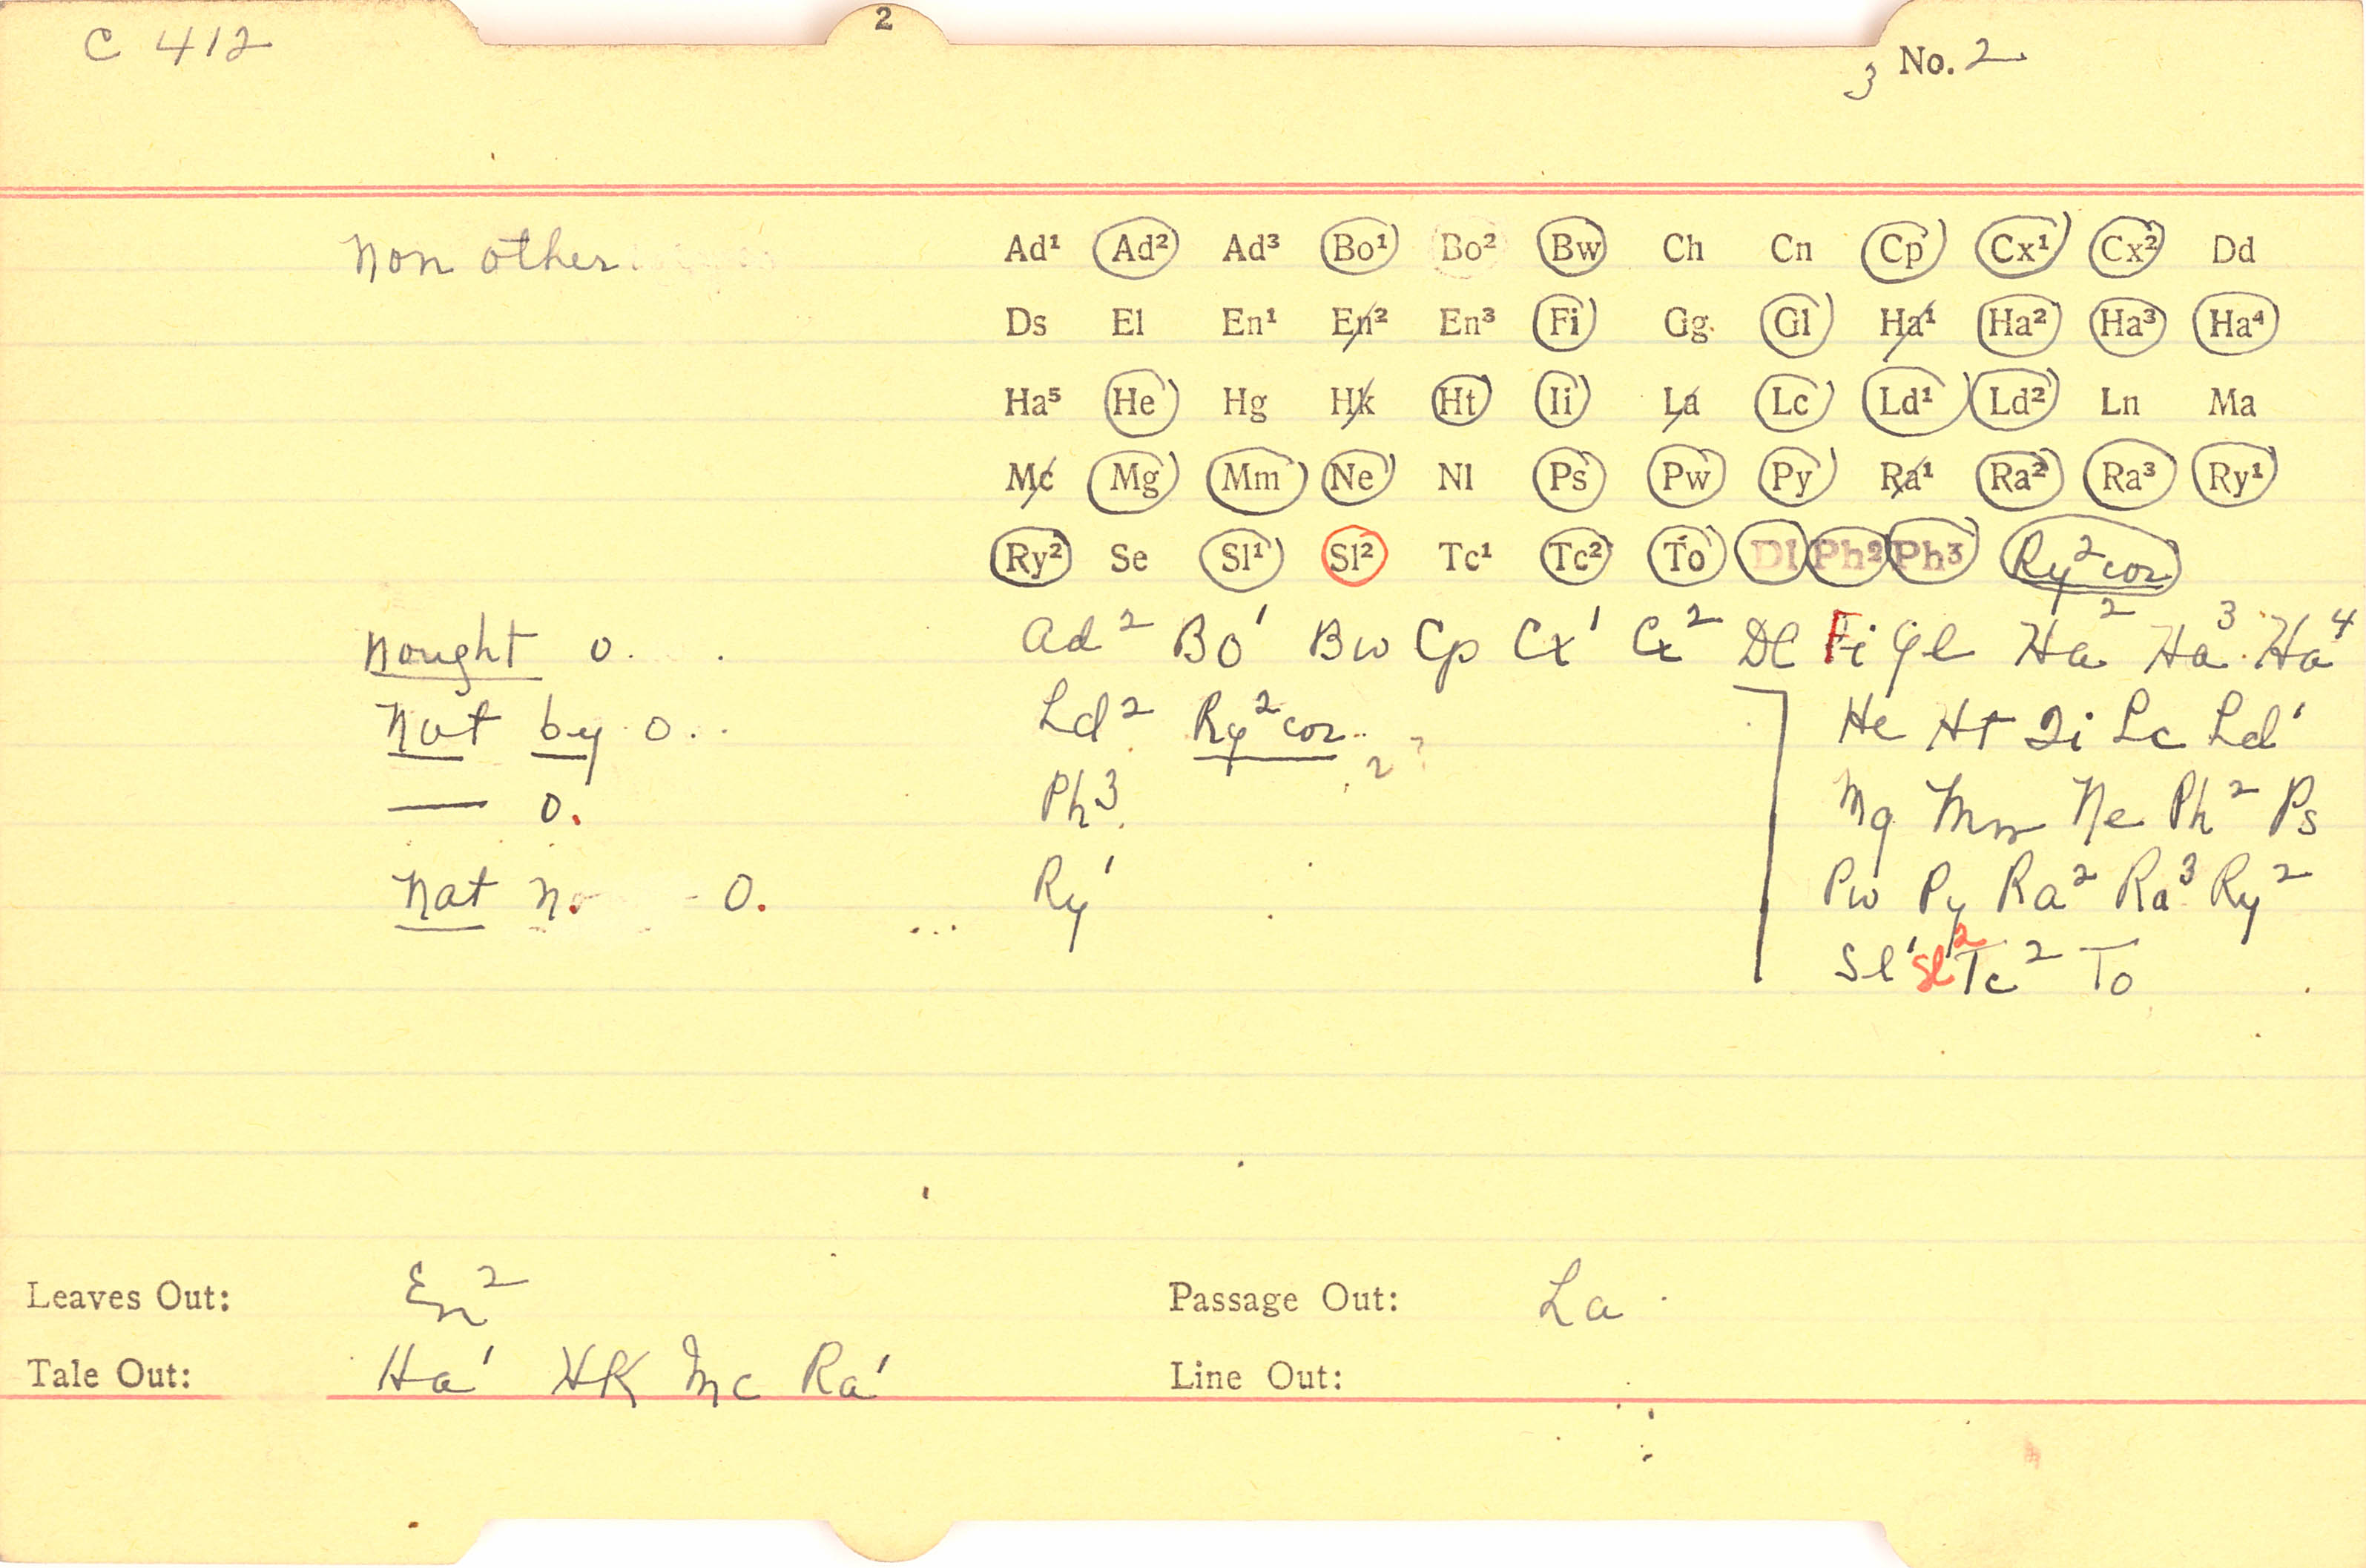 2
C 412
No. 2
3
non other
Ad¹ Ad² Ad³ Bo¹ Bo² Bw Ch Cn Cp Cx¹ Cx² Dd
Ds El En¹ En² En³ Fi Gg Gl Ha¹ Ha² Ha³ Ha⁴
Ha⁵ He Hg Hk Ht Ii La Lc Ld¹ Ld² Ln Ma
Mc Mg Mm Ne Nl Ps Pw Py Ra¹ Ra² Ra³ Ry¹
Ry² Se Sl¹ Sl² Tc¹ Tc² To Dl Ph² Ph³ Ry² cor
nought o. Ad² Bo¹ Bw Cp Cx¹ Cx² Dl Fi Gl Ha² Ha³ Ha⁴
Nat by o. Ld² Ry² cor ] He Ht Ii Lc Ld¹
— o. Ph³ Mg Mm Ne Ph² Ps
nat n. o. Ry¹ Pw Py Ra² Ra³ Ry²
Sl¹ Sl² Tc² To
Leaves Out: En² Passage Out: La
Tale Out: Ha¹ HK Mc Ra¹ Line Out: